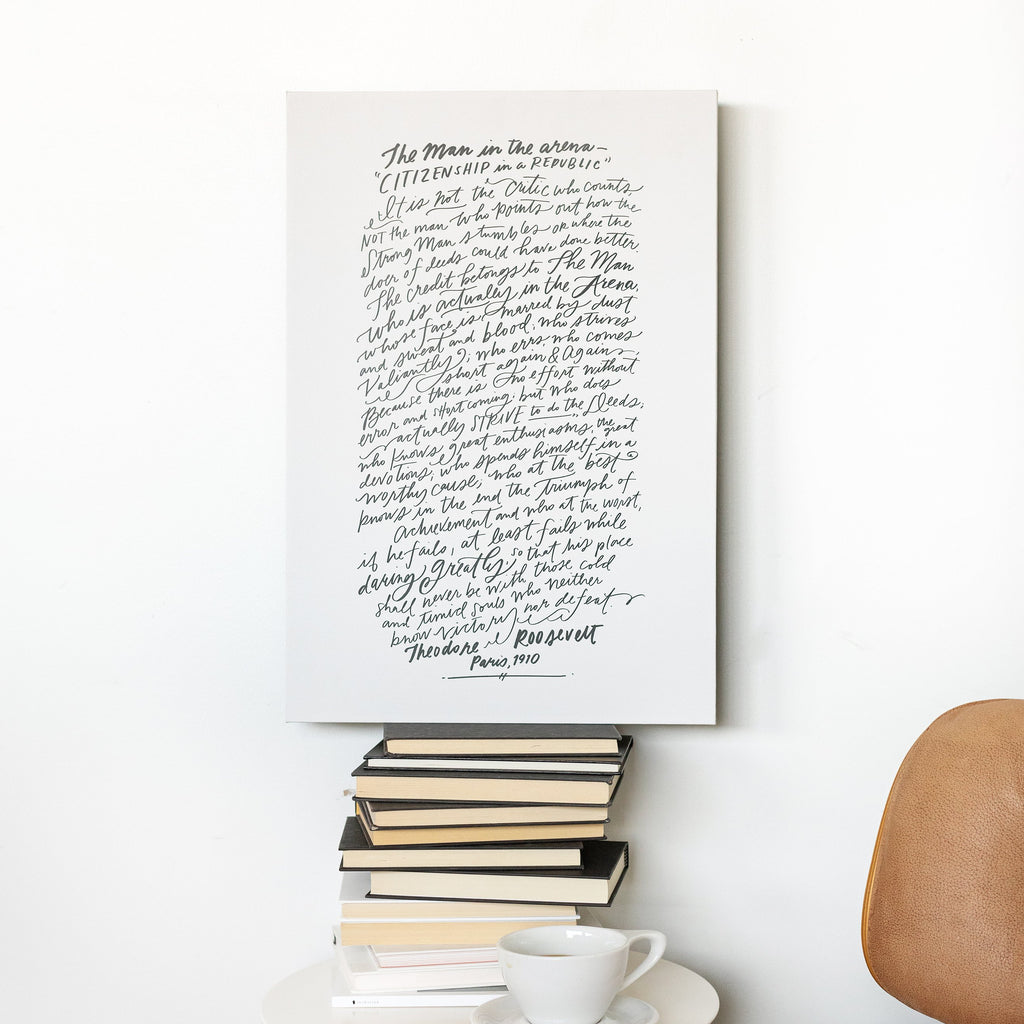 The Man in the arena–
"CITIZENSHIP in a REPUBLIC"
It is not the critic who counts
NOT the man who points out how the
strong Man stumbles or where the
doer of deeds could have done better.
The credit belongs to The Man
who is actually in the Arena,
whose face is marred by dust
and sweat and blood, who strives
valiantly; who errs, who comes
short again & Again,
Because there is no effort without
error and shortcoming; but who does
actually STRIVE to do the Deeds;
who knows great enthusiasms, the great
devotions; who spends himself in a
worthy cause; who at the best
knows in the end the triumph of
Achievement and who at the worst,
if he fails, at least fails while
daring greatly, so that his place
shall never be with those cold
and timid souls who neither
know victory nor defeat.
Theodore Roosevelt
Paris, 1910